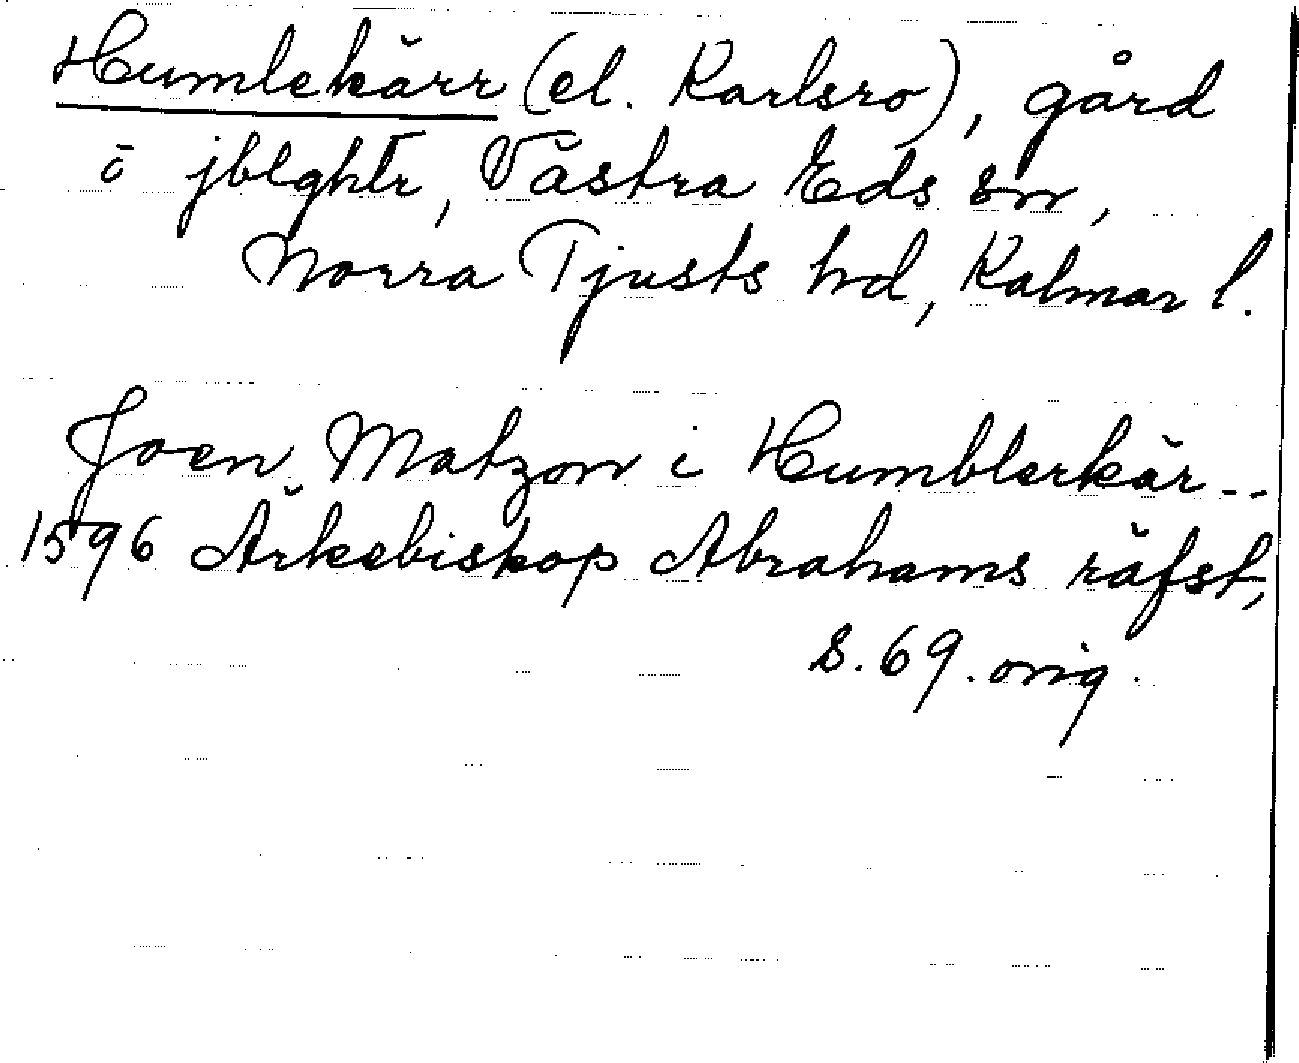 Humlekärr (el. Karlsro), gård
ö jblghtr, Västra Eds sn,
Norra Tjusts hd, Kalmar l.
Joen Matzon i Humblerkär --
1596 Ärkebiskop Abrahams räfst,
s. 69. orig.